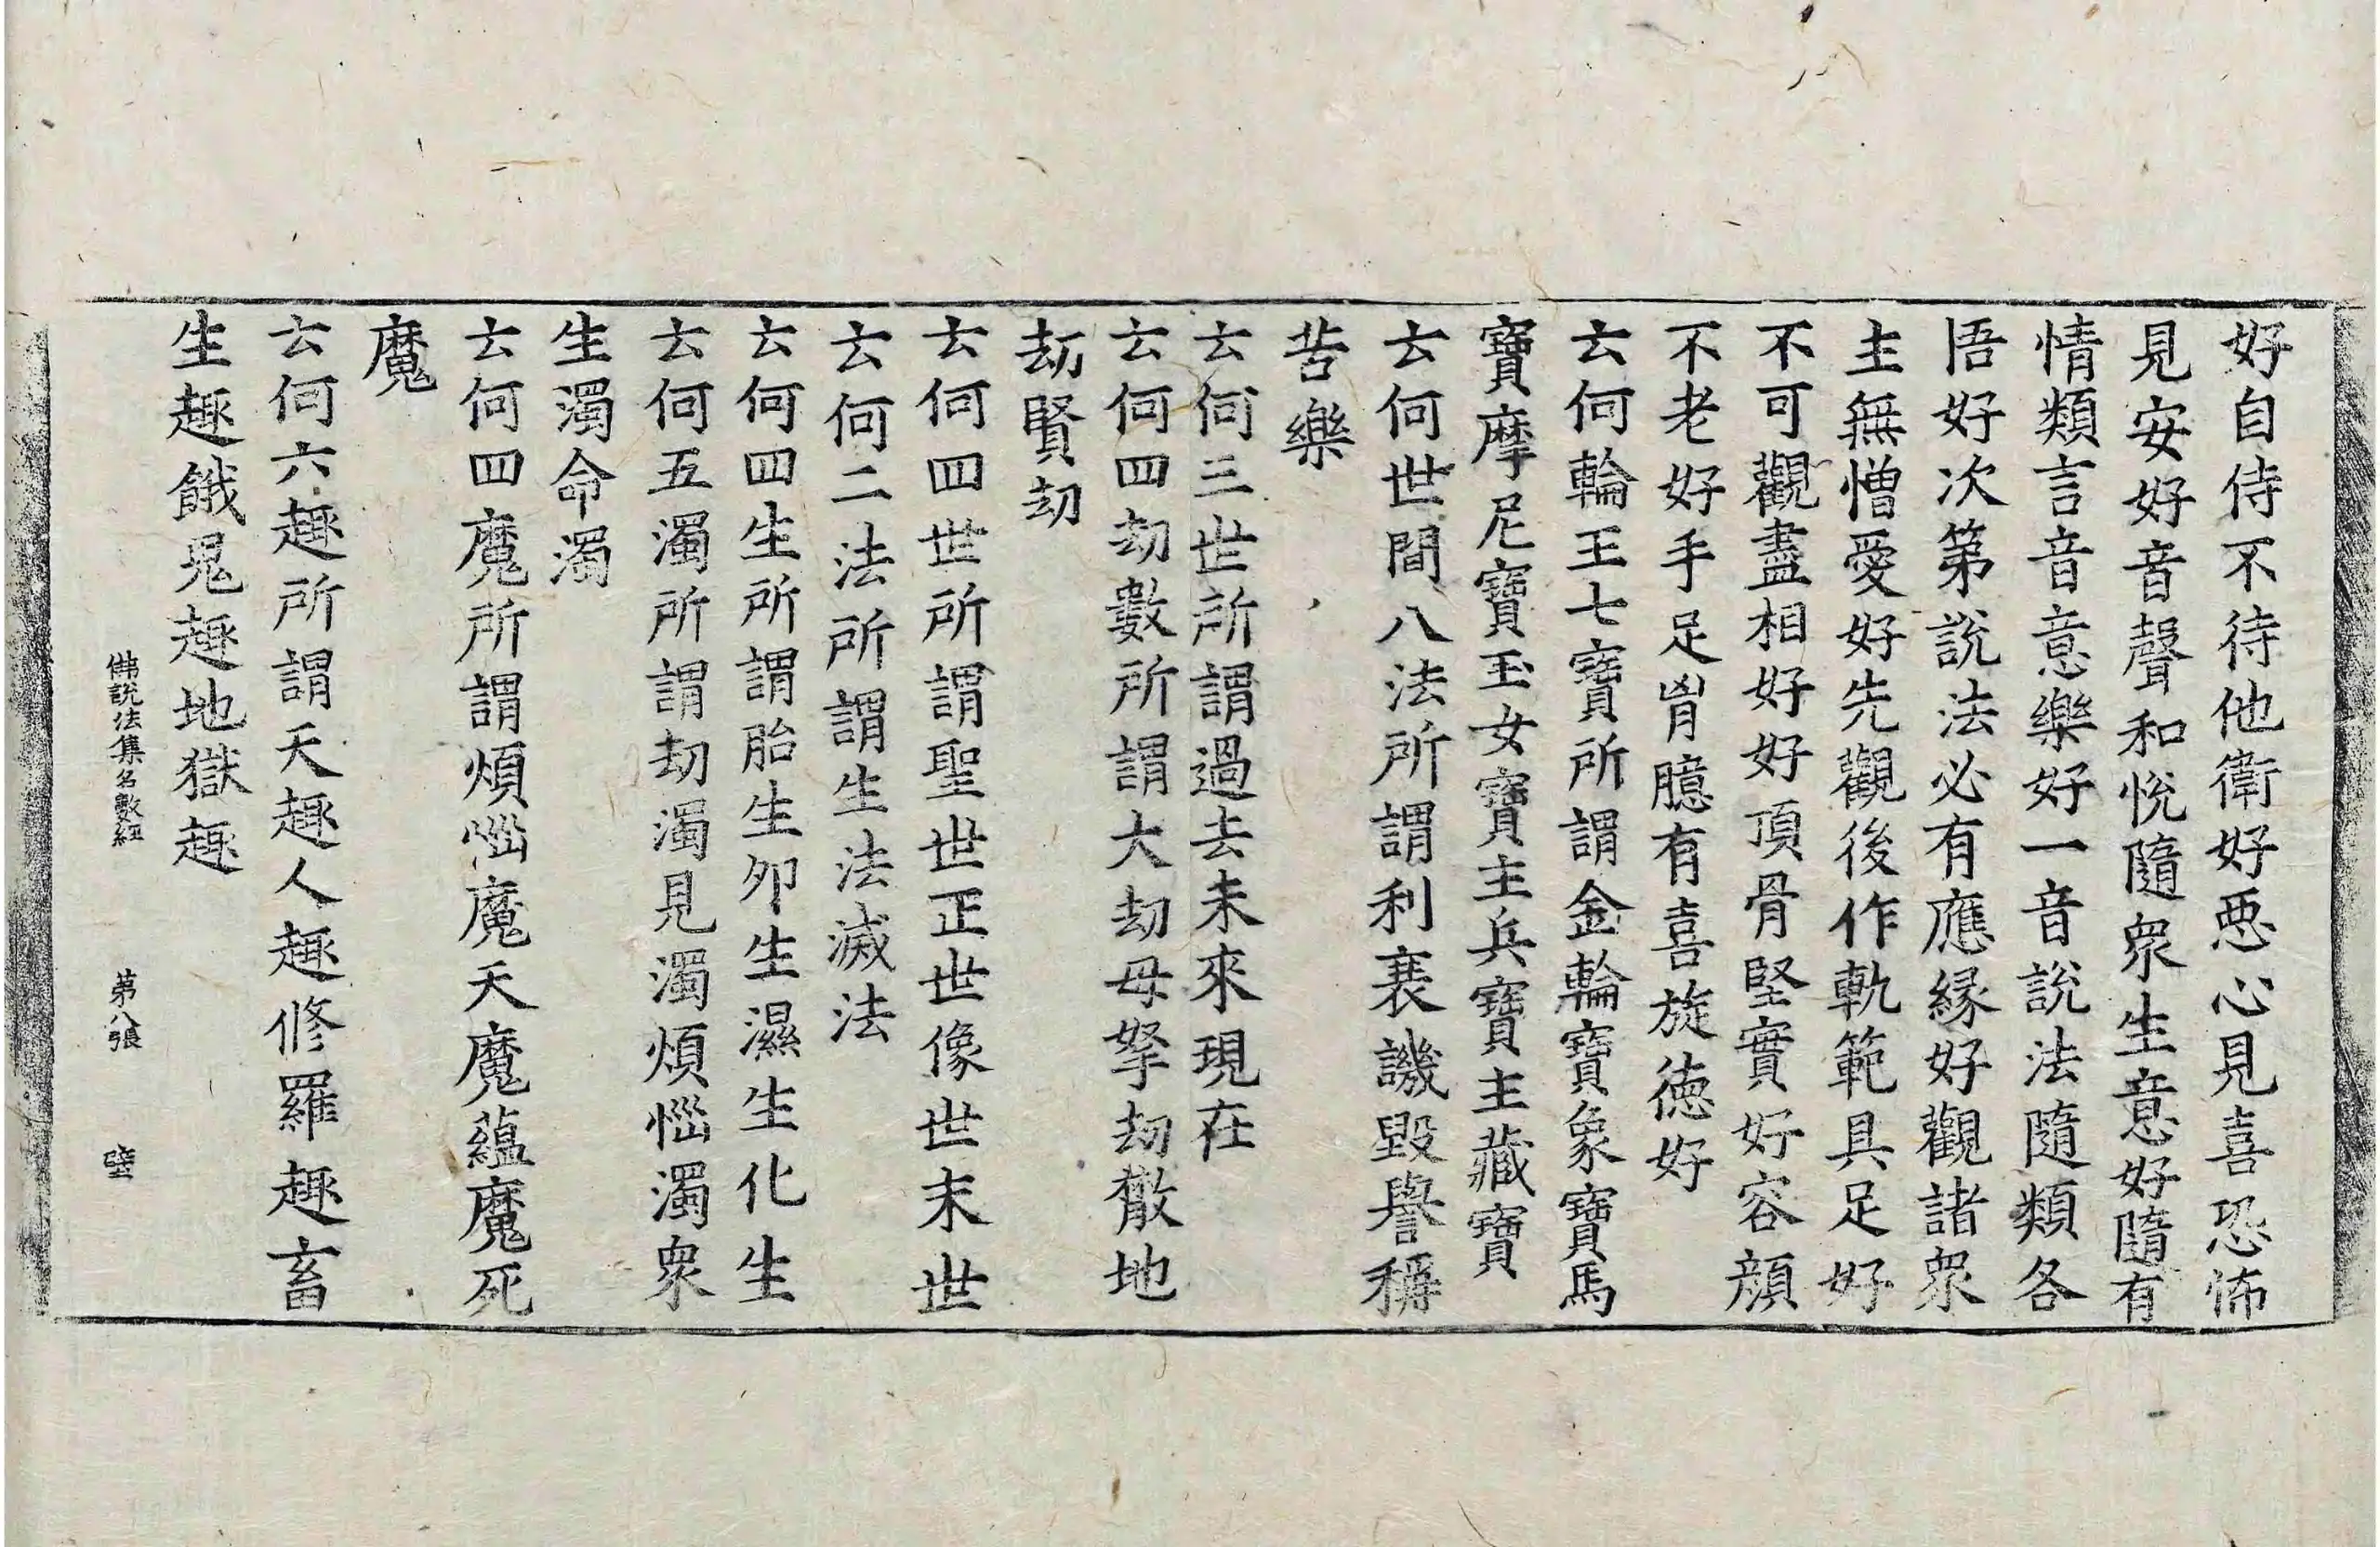 好自侍不待他衛好惡心見喜恐怖
見安好音聲和悅隨衆生意好隨有
情類言音意樂好一音說法隨類各
悟好次第說法必有應緣好觀諸衆
主無憎愛好先觀後作軌範具足好
不可觀盡相好好頂骨堅實好容顏
不老好手足胷臆有喜旋德好
云何輪王七寶所謂金輪寶象寶馬
寶摩尼寶玉女寶主兵寶主藏寶
云何世間八法所謂利衰譏毀譽稱
苦樂
云何三世所謂過去未來現在
云何四刼數所謂大刼母拏刼散地
刼賢刼
云何四世所謂聖世正世像世末世
云何二法所謂生法滅法
云何四生所謂胎生卵生濕生化生
云何五濁所謂刼濁見濁煩惱濁衆
生濁命濁
云何四魔所謂煩惱魔天魔蘊魔死
魔
云何六趣所謂天趣人趣修羅趣畜
生趣餓鬼趣地獄趣
佛說法集名數經 第八張